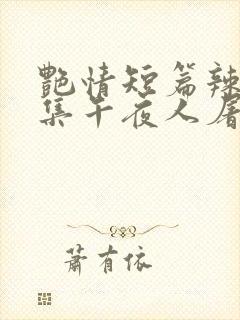 艷情短篇辣
集午夜人屠
蕭有依